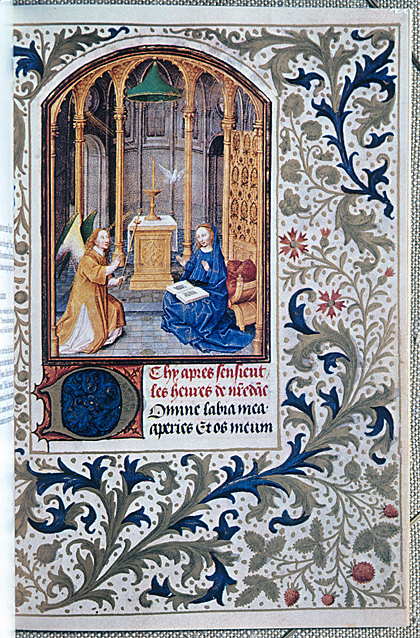 Chy apres sensieuent
les heures de nr̄e dāe
DOmine labia mea
aperies Et os meum